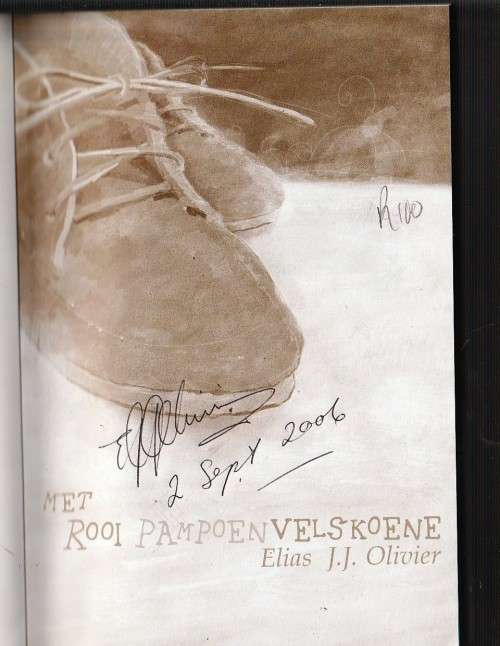 R100
2 Sept 2006
MET
ROOI PAMPOENVELSKOENE
Elias J.J. Olivier